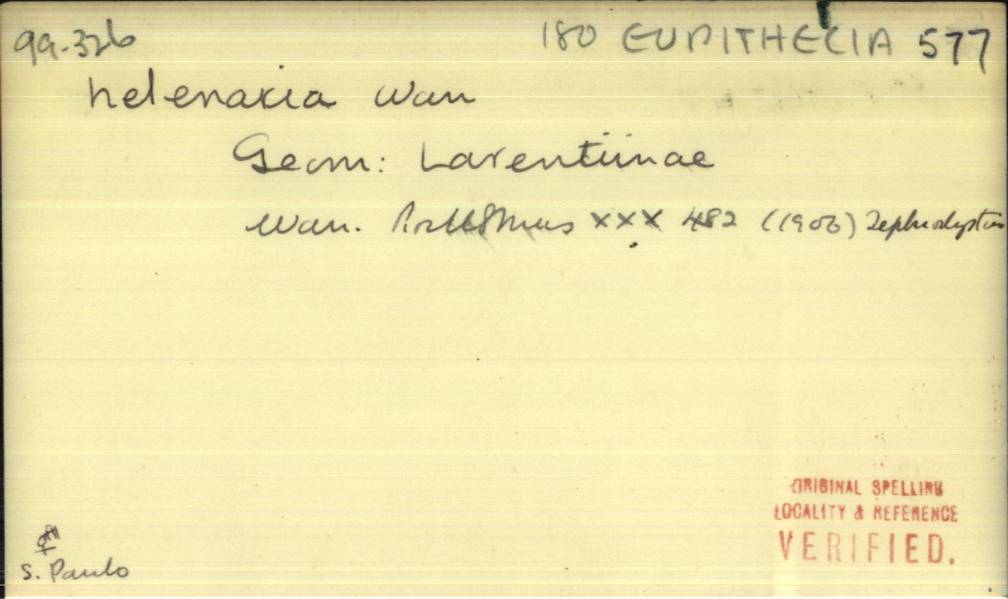 99-326 180 EUPITHECIA 577
helenaria Warr
Geom: Larentiinae
Warr. Pr US Mus XXX 482 (1906) Tephroclystia
ORIGINAL SPELLING
LOCALITY & REFERENCE
VERIFIED.
S. Paulo